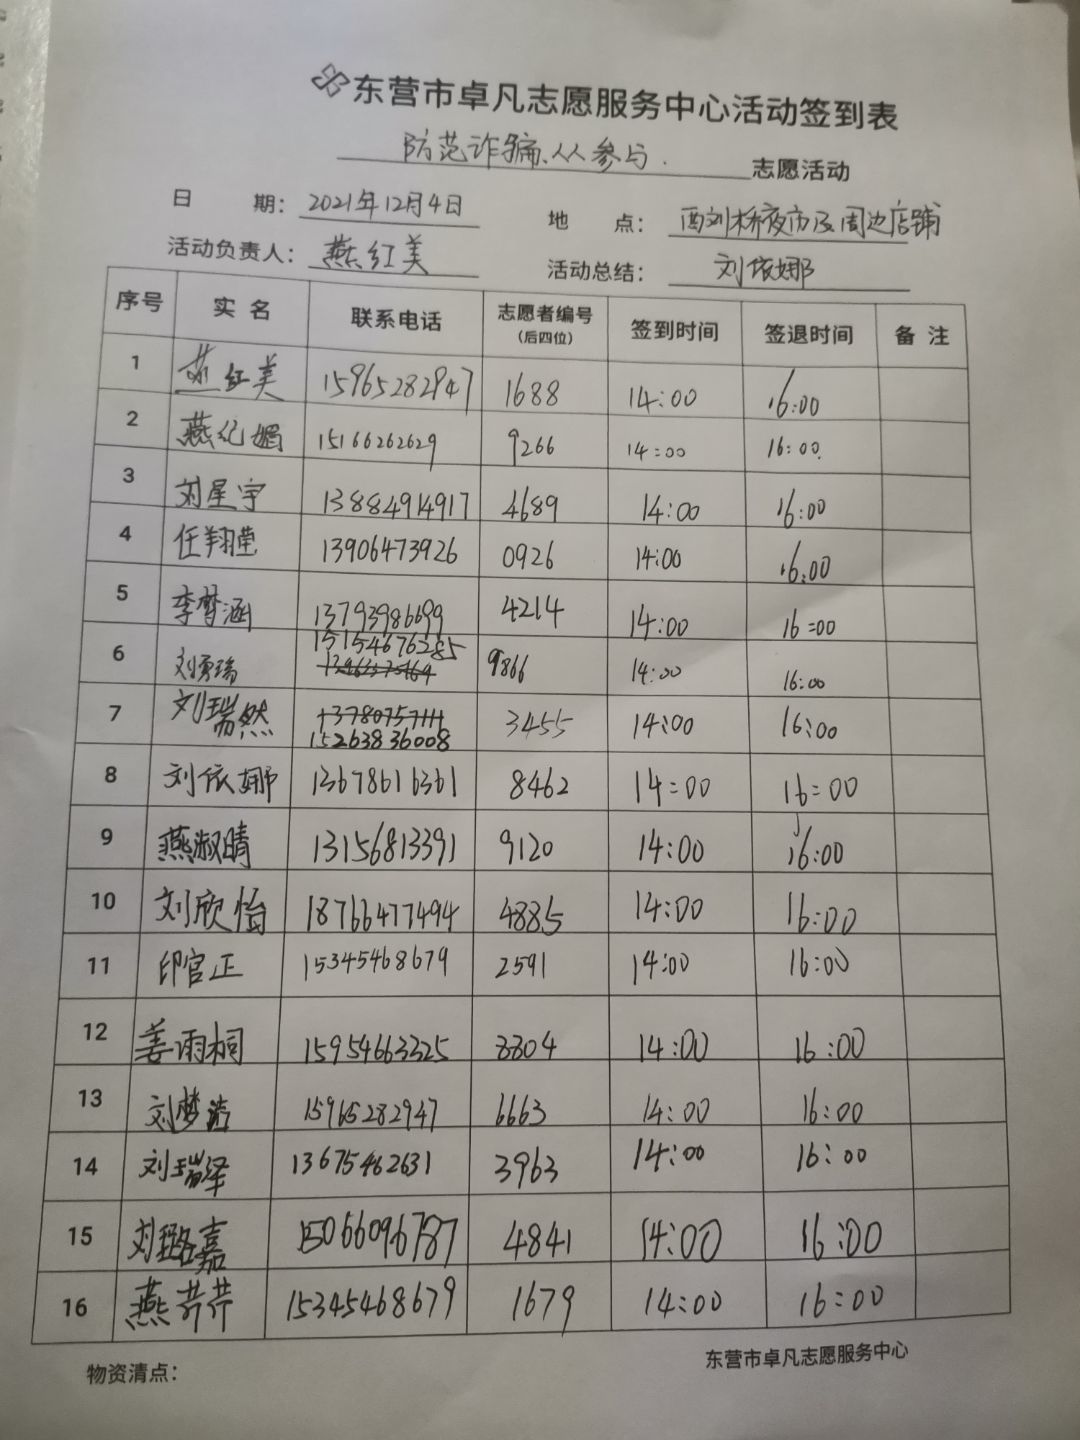 东营市卓凡志愿服务中心活动签到表
防范诈骗、人人参与. 志愿活动
日 期: 2021年12月4日 地 点: 西刘桥夜市及周边店铺
活动负责人: 燕红美 活动总结: 刘依娜
序号 实名 联系电话 志愿者编号(后四位) 签到时间 签退时间 备注
1 燕红美 15965282947 1688 14:00 16:00
2 燕亿媚 15166262629 9266 14:00 16:00.
3 刘星宇 13884914917 4689 14:00 16:00
4 任翔莹 13906473926 0926 14:00 16:00
5 李梦涵 13793986699 4214 14:00 16:00
6 刘勇瑞 15154676285 9866 14:00 16:00
7 刘瑞然 13780757111 15263836008 3455 14:00 16:00
8 刘依娜 13678616361 8462 14:00 16:00
9 燕淑晴 13156813391 9120 14:00 16:00
10 刘欣怡 18766477494 4885 14:00 16:00
11 印官正 15345468679 2591 14:00 16:00
12 姜雨桐 15954663325 8804 14:00 16:00
13 刘梦洁 15965282947 6663 14:00 16:00
14 刘瑞泽 13675462631 3963 14:00 16:00
15 刘璐嘉 15066096787 4841 14:00 16:00
16 燕芹芹 15345468679 1679 14:00 16:00
物资清点: 东营市卓凡志愿服务中心